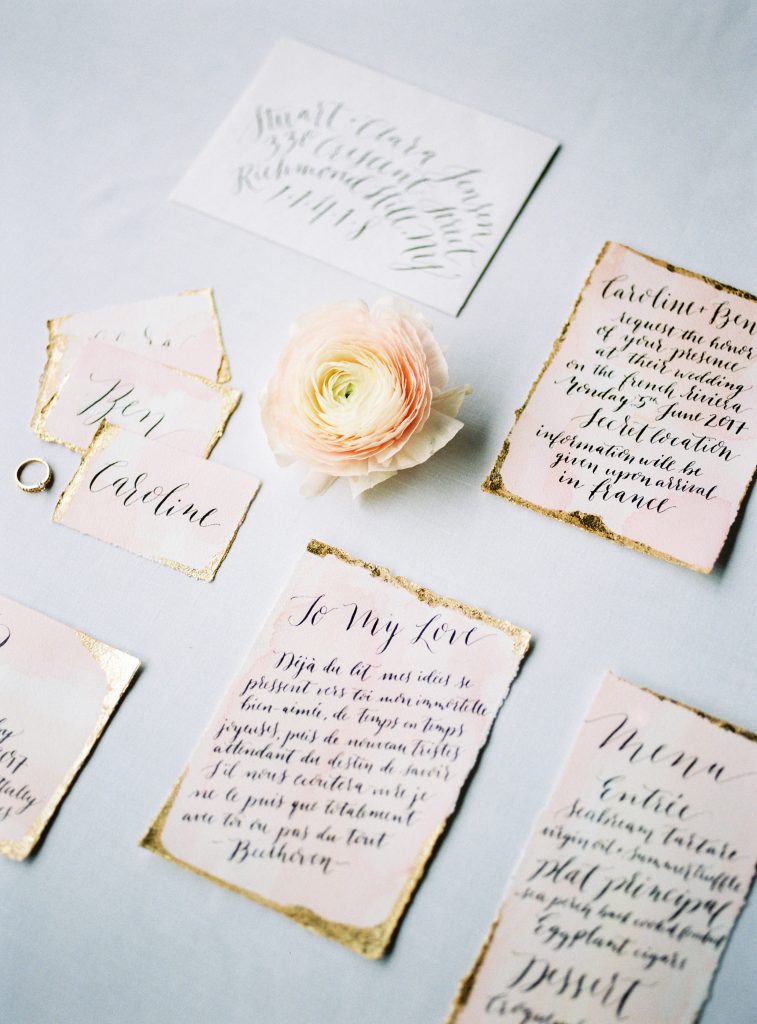 Stuart + Clara Jensen
330 Crescent Street
Richmond Hill NY
11418
Caroline + Ben
request the honor
of your presence
at their wedding
on the french riviera
Monday 5th June 2017
Secret location
information will be
given upon arrival
in france
Ben
Caroline
To My Love
Déjà du lit mes idées se
pressent vers toi mon immortelle
bien-aimée, de temps en temps
joyeuses, puis de nouveau tristes
attendant du destin de savoir
s'il nous écoutera vivre je
ne le puis que totalement
avec toi ou pas du tout
- Beethoven -
Menu
Entrée
seabream tartare
virgin oil + summer truffle
Plat principal
sea perch
Eggplant cigars
Dessert